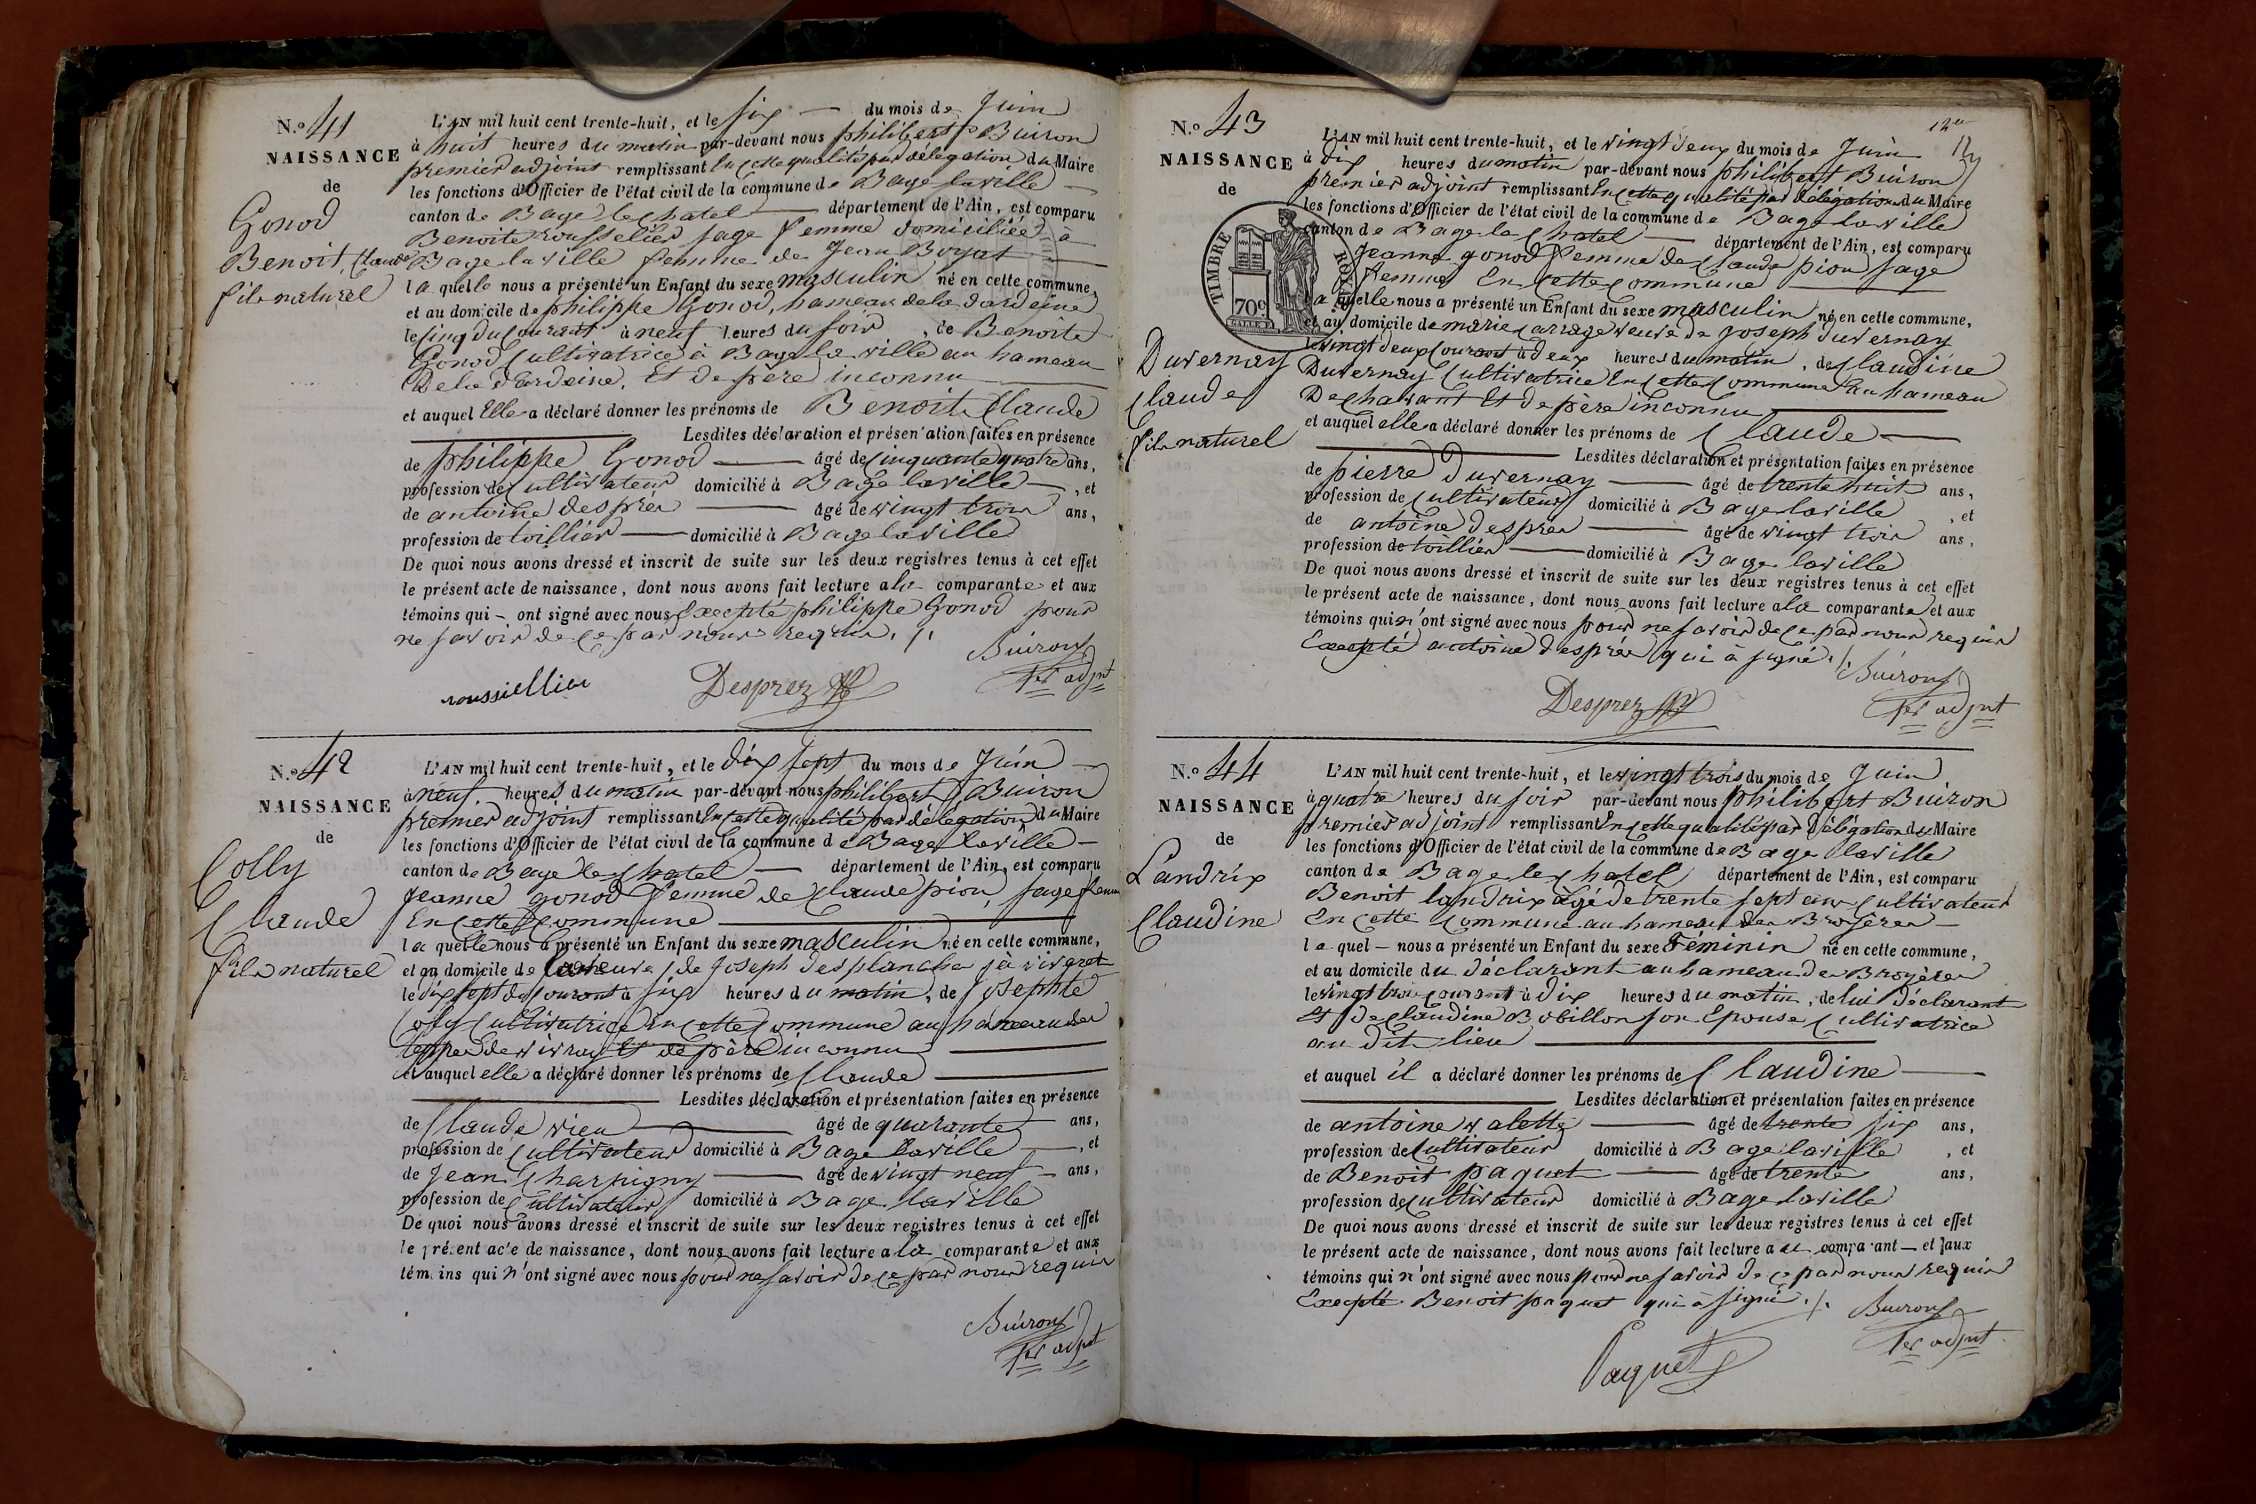 N.o 41
NAISSANCE
de
Gonod
Benoit, Claude
fils naturel
L'AN mil huit cent trente-huit, et le six du mois de Juin
à huit heures du matin par-devant nous philibert Buiron
premier adjoint remplissant En cette qualité par délégation du Maire
les fonctions d'Officier de l'état civil de la commune de Bage laville
canton de Bage le chatel département de l'Ain, est comparu
Benoite rousselier sage femme domiciliée à
Bage laville femme de Jean Boyat
la quelle nous a présenté un Enfant du sexe masculin né en cette commune,
et au domicile de philippe Gonod, hameau de la dardeine
le cinq du courant à neuf heures du soir, de Benoite
Gonod Cultivatrice à Bage la ville au hameau
De la dardeine, Et de père inconnu
et auquel Elle a déclaré donner les prénoms de Benoit Claude
Lesdites déclaration et présentation faites en présence
de philippe Gonod âgé de Cinquante quatre ans,
profession de Cultivateur domicilié à Bage laville, et
de antoine desprès âgé de vingt trois ans,
profession de toillier domicilié à Bage laville
De quoi nous avons dressé et inscrit de suite sur les deux registres tenus à cet effet
le présent acte de naissance, dont nous avons fait lecture a la comparante et aux
témoins qui - ont signé avec nous Excepté philippe Gonod pour
ne savoir de ce par nous requis ./.
Buiron
roussiellier Desprez 1er adjnt
N.o 42
NAISSANCE
de
Colly
Claude
fils naturel
L'AN mil huit cent trente-huit, et le dix sept du mois de Juin
à neuf heures du matin par-devant nous philibert Buiron
premier adjoint remplissant En cette qualité par délégation du Maire
les fonctions d'Officier de l'état civil de la commune de Bage laville
canton de Bage le chatel département de l'Ain, est comparu
Jeanne gonod femme de Claude pion, sage femme
En cette Commune
la quelle nous a présenté un Enfant du sexe masculin né en cette commune,
et au domicile de veuve de Joseph desplanche
le dix sept du Courant à six heures du matin, de Josephte
Colly Cultivatrice En cette Commune au hameau
Et de père inconnu
et auquel elle a déclaré donner les prénoms de Claude
Lesdites déclaration et présentation faites en présence
de Claude vieu âgé de quarante ans,
profession de Cultivateur domicilié à Bage laville, et
de Jean Charpigny âgé de vingt neuf ans,
profession de Cultivateur domicilié à Bage laville
De quoi nous avons dressé et inscrit de suite sur les deux registres tenus à cet effet
le présent acte de naissance, dont nous avons fait lecture a la comparante et aux
témoins qui n'ont signé avec nous pour ne savoir de ce par nous requis
Buiron
1er adjnt
12e
N.o 43
NAISSANCE
de
TIMBRE ROYAL
70c
Duvernay
Claude
fils naturel
L'AN mil huit cent trente-huit, et le vingt deux du mois de Juin
à dix heures du matin par-devant nous philibert Buiron
premier adjoint remplissant En cette qualité par délégation du Maire
les fonctions d'Officier de l'état civil de la commune de Bage laville
canton de Bage le chatel département de l'Ain, est comparu
Jeanne gonod femme de Claude pion sage
femme En cette Commune
la quelle nous a présenté un Enfant du sexe masculin né en cette commune,
et au domicile de marie Carrage veuve de joseph duvernay
le vingt deux Courant à deux heures du matin, de Claudine
Duvernay Cultivatrice En cette Commune au hameau
De chavant Et de père inconnu
et auquel elle a déclaré donner les prénoms de Claude
Lesdites déclaration et présentation faites en présence
de pierre duvernay âgé de trente huit ans,
profession de Cultivateur domicilié à Bage laville, et
de antoine despres âgé de vingt trois ans,
profession de toillier domicilié à Bage laville
De quoi nous avons dressé et inscrit de suite sur les deux registres tenus à cet effet
le présent acte de naissance, dont nous avons fait lecture a la comparante et aux
témoins qui n'ont signé avec nous pour ne savoir de ce par nous requis
Excepté antoine desprès qui à signé ./.
Buiron
Desprez 1er adjnt
N.o 44
NAISSANCE
de
Landrix
Claudine
L'AN mil huit cent trente-huit, et le vingt trois du mois de Juin
à quatre heures du soir par-devant nous philibert Buiron
premier adjoint remplissant En cette qualité par délégation du Maire
les fonctions d'Officier de l'état civil de la commune de Bage laville
canton de Bage le chatel département de l'Ain, est comparu
Benoit landrix âgé de trente sept ans Cultivateur
En cette Commune au hameau des Broyères
le quel - nous a présenté un Enfant du sexe Féminin né en cette commune,
et au domicile du déclarant au hameau des Broyères
le vingt trois courant à dix heures du matin, de lui déclarant
Et de Claudine Bobillon son Epouse Cultivatrice
au dit lieu
et auquel il a déclaré donner les prénoms de Claudine
Lesdites déclaration et présentation faites en présence
de antoine valette âgé de trente six ans,
profession de Cultivateur domicilié à Bage laville, et
de Benoit paquet âgé de trente ans,
profession de Cultivateur domicilié à Bage laville
De quoi nous avons dressé et inscrit de suite sur les deux registres tenus à cet effet
le présent acte de naissance, dont nous avons fait lecture a u comparant - et aux
témoins qui n'ont signé avec nous pour ne savoir de ce par nous requis
Excepté Benoit paquet qui à signé ./.
Buiron
Paquet 1er adjnt